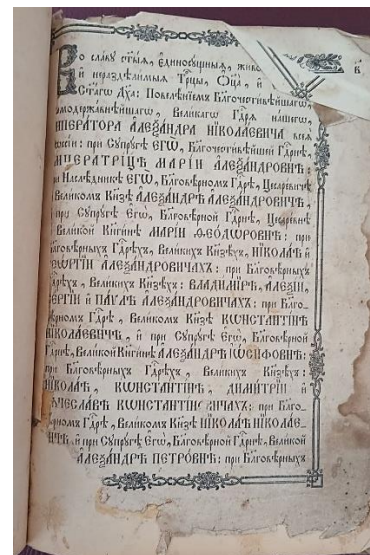 Во славу ст҃ыѧ, є҆диносꙋщныѧ, живо
и҆ нераздѣлимыѧ Трⷪ҇цы, Ѻ҆ц҃а̀, и҆
Ст҃а́гѡ Дх҃а: Повелѣнїемъ Бл҃гочестивѣйшагѡ,
модержавнѣйшагѡ, Великагѡ Гдⷭ҇рѧ нашегѡ,
МПЕРАТОРА АЛЕѮАНДРА НІКОЛАЕВИЧА всеѧ
при Сꙋпрꙋгѣ ЕГѠ, Бл҃гочестивѣйшей Гдⷭ҇рнѣ,
МПЕРАТРІЦѢ МАРІИ АЛЕѮАНДРОВНѢ:
Наслѣдникѣ ЕГѠ, Бл҃говѣрномъ Гдⷭ҇рѣ, Цесаревичѣ
Великомъ Кн҃зѣ АЛЕѮАНДРѢ АЛЕѮАНДРОВИЧѢ,
при Сꙋпрꙋгѣ Егѡ, Бл҃говѣрной Гдⷭ҇рнѣ, Цесаревнѣ
Великой Кн҃гинѣ МАРІИ ѲЕОДѠРОВНѢ: при
лаговѣрныхъ Гдⷭ҇рѣхъ, Великихъ Кн҃зѣхъ, НІКОЛАѢ и҆
ЕѠРГІИ АЛЕѮАНДРОВИЧАХЪ: при Бл҃говѣрныхъ
Гдⷭ҇рѣхъ, Великихъ Кн҃зѣхъ: ВЛАДИМІРѢ, АЛЕѮІИ,
ЕРГІИ и҆ ПАѴЛѢ АЛЕѮАНДРОВИЧАХЪ: при Бл҃го-
вѣрномъ Гдⷭ҇рѣ, Великомъ Кн҃зѣ КѠНСТАНТІНѢ
НІКОЛАЕВИЧѢ, и҆ при Сꙋпрꙋгѣ Егѡ, Бл҃говѣрной
Гдⷭ҇рнѣ, Великой Кн҃гинѣ АЛЕѮАНДРѢ ІѠСИФОВНѢ:
при Бл҃говѣрныхъ Гдⷭ҇рѣхъ, Великихъ Кн҃зѣхъ:
НІКОЛАѢ, КѠНСТАНТІНѢ, ДИМИТРІИ и҆
ѦЧЕСЛАВѢ КѠНСТАНТІ ИЧАХЪ: при Бл҃го-
вѣрномъ Гдⷭ҇рѣ, Великомъ Кн҃зѣ НІКОЛАѢ НІКОЛАЕ-
ВИЧѢ, и҆ при Сꙋпрꙋгѣ Егѡ, Бл҃говѣрной Гдⷭ҇рнѣ, Великой
АЛЕѮАНДРѢ ПЕТРОВНѢ: при Бл҃говѣрныхъ